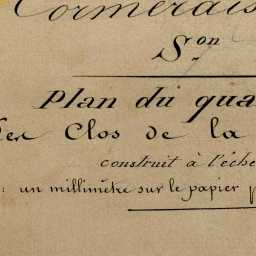 Cormerais
S.on
Plan du qua
Clos de la
construit à l'éche
: un millimètre sur le papier p